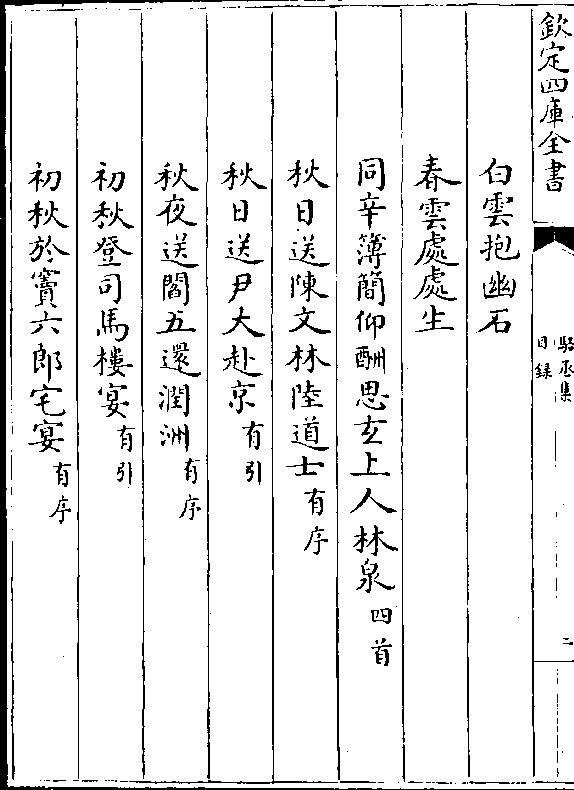 欽定四庫全書
駱丞集
目錄
二
白雲抱幽石
春雲處處生
同辛簿簡仰酬思玄上人林泉四首
秋日送陳文林陸道士有序
秋日送尹大赴京有引
秋夜送閻五還潤洲有序
初秋登司馬樓宴有引
初秋於竇六郎宅宴有序